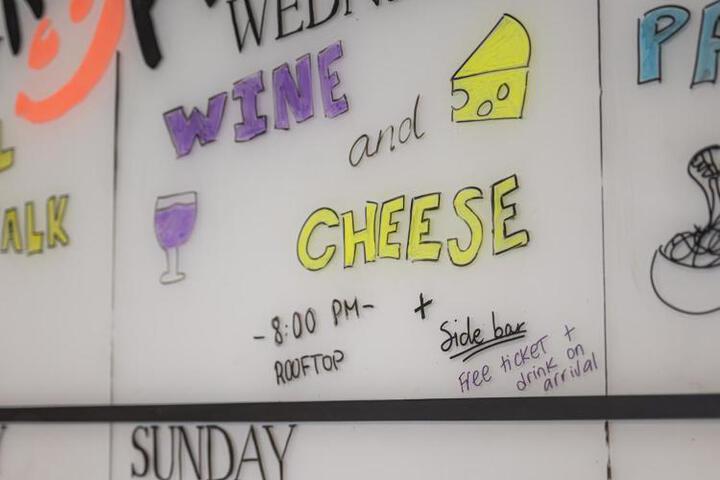 WINE
and
CHEESE
-8:00 PM-
ROOFTOP
+
Side bar
Free ticket +
drink on
arrival
ALK
SUNDAY